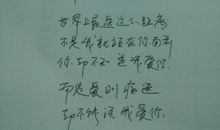 世界上最遥远的距离
不是我就站在你面前
你却不知道我爱你
而是爱到痴迷
却不能说我爱你。